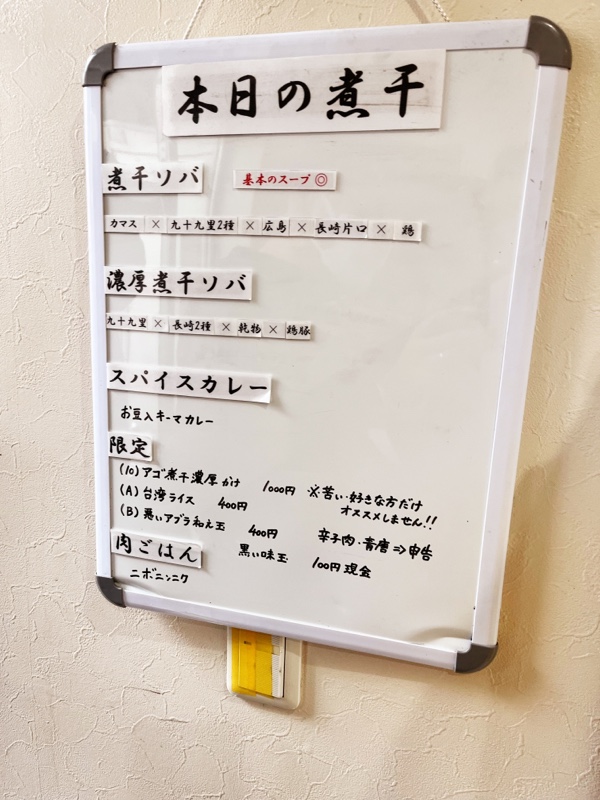 本日の煮干
煮干ソバ 基本のスープ◎
カマス × 九十九里2種 × 広島 × 長崎片口 × 鶏
濃厚煮干ソバ
九十九里 × 長崎2種 × 乾物 × 鶏豚
スパイスカレー
お豆入キーマカレー
限定
(10) アゴ煮干濃厚かけ 1000円 ※苦い好きな方だけ
オススメしません!!
(A) 台湾ライス 400円
(B) 悪いアブラ和え玉 400円 辛子肉・青唐⇒申告
肉ごはん 黒い味玉 100円 現金
ニボニンニク